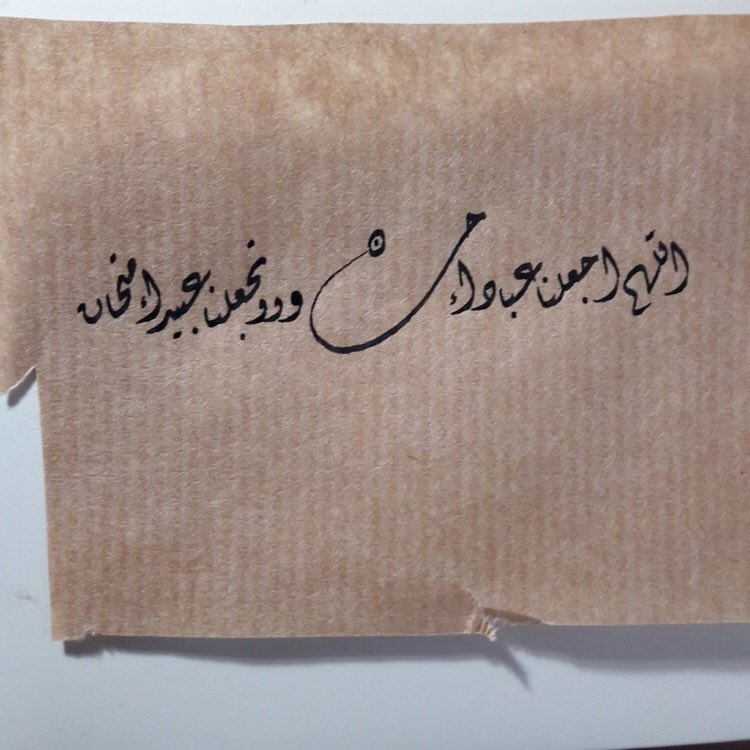 اللهم اجعلنا عباد إحسان ولا تجعلنا عبيد امتحان